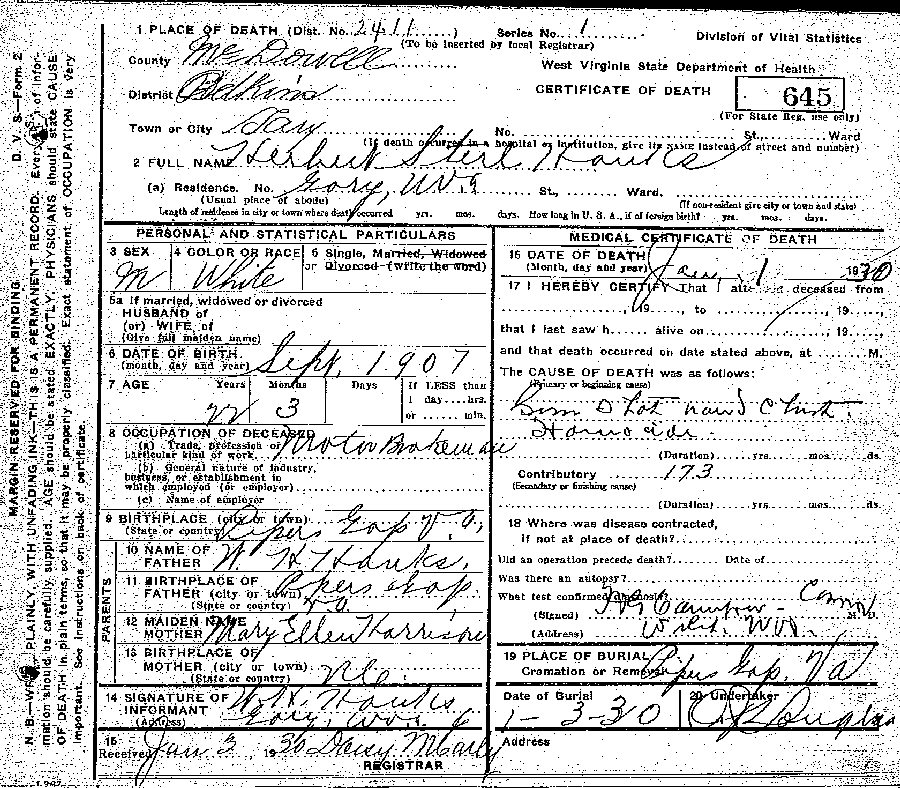 1 PLACE OF DEATH (Dist. No. 2411) Series No. 1 Division of Vital Statistics
(To be inserted by local Registrar)
County McDowell West Virginia State Department of Health
District Adkins CERTIFICATE OF DEATH 645
(For State Reg. use only)
Town or City Gary No. St., Ward
(If death occurred in a hospital or institution, give its NAME instead of street and number)
2 FULL NAME Herbert Sterl Hanks
(a) Residence. No. Gary, W.Va St., Ward.
(Usual place of abode) (If non-resident give city or town and state)
Length of residence in city or town where death occurred yrs. mos. days. How long in U. S. A., if of foreign birth? yrs. mos. days.
PERSONAL AND STATISTICAL PARTICULARS
3 SEX 4 COLOR OR RACE 5 Single, Married, Widowed
or Divorced (write the word)
M White
5a If married, widowed or divorced
HUSBAND of
(or) WIFE of
(Give full maiden name)
6 DATE OF BIRTH
(month, day and year) Sept, 1907
7 AGE Years Months Days If LESS than
1 day....hrs.
or ...... min.
22 3
8 OCCUPATION OF DECEASED
(a) Trade, profession or
particular kind of work. Motor Brakeman
(b) General nature of industry,
business, or establishment in
which employed (or employer)
(c) Name of employer
9 BIRTHPLACE (city or town)
(State or country) Pipers Gap Va.
PARENTS
10 NAME OF
FATHER W. H. Hanks,
11 BIRTHPLACE OF
FATHER (city or town) Pipers Gap
(State or country) Va
12 MAIDEN NAME
MOTHER Mary Ellen Harrison
13 BIRTHPLACE OF
MOTHER (city or town)
(State or country)
14 SIGNATURE OF
INFORMANT W. H. Hanks
(Address) Gary, W.Va.
15
Received Jan 3 1930 Daisy
REGISTRAR
MEDICAL CERTIFICATE OF DEATH
16 DATE OF DEATH
(Month, day and year) Jany 1 1930
17 I HEREBY CERTIFY That I attended deceased from
, 19 , to , 19 ,
that I last saw h alive on , 19 ,
and that death occurred on date stated above, at M.
The CAUSE OF DEATH was as follows:
(Primary or beginning cause)
Gun Shot
Homocide
(Duration) yrs mos ds.
Contributory 173
(Secondary or finishing cause)
(Duration) yrs. mos. ds.
18 Where was disease contracted,
if not at place of death?
Did an operation precede death? Date of
Was there an autopsy?
What test confirmed diagnosis?
(Signed) M. D.
(Address) Welch, W.Va.
19 PLACE OF BURIAL
Cremation or Removal Pipers Gap, Va
Date of Burial 20 Undertaker
1-3-30 Douglas
Address
MARGIN RESERVED FOR BINDING. D. V. S.—Form 2
N. B.—WRITE PLAINLY, WITH UNFADING INK—THIS IS A PERMANENT RECORD. Every item of infor-
mation should be carefully supplied. AGE should be stated EXACTLY. PHYSICIANS should state CAUSE
OF DEATH in plain terms, so that it may be properly classified. Exact statement of OCCUPATION is very
important. See instructions on back of certificate.